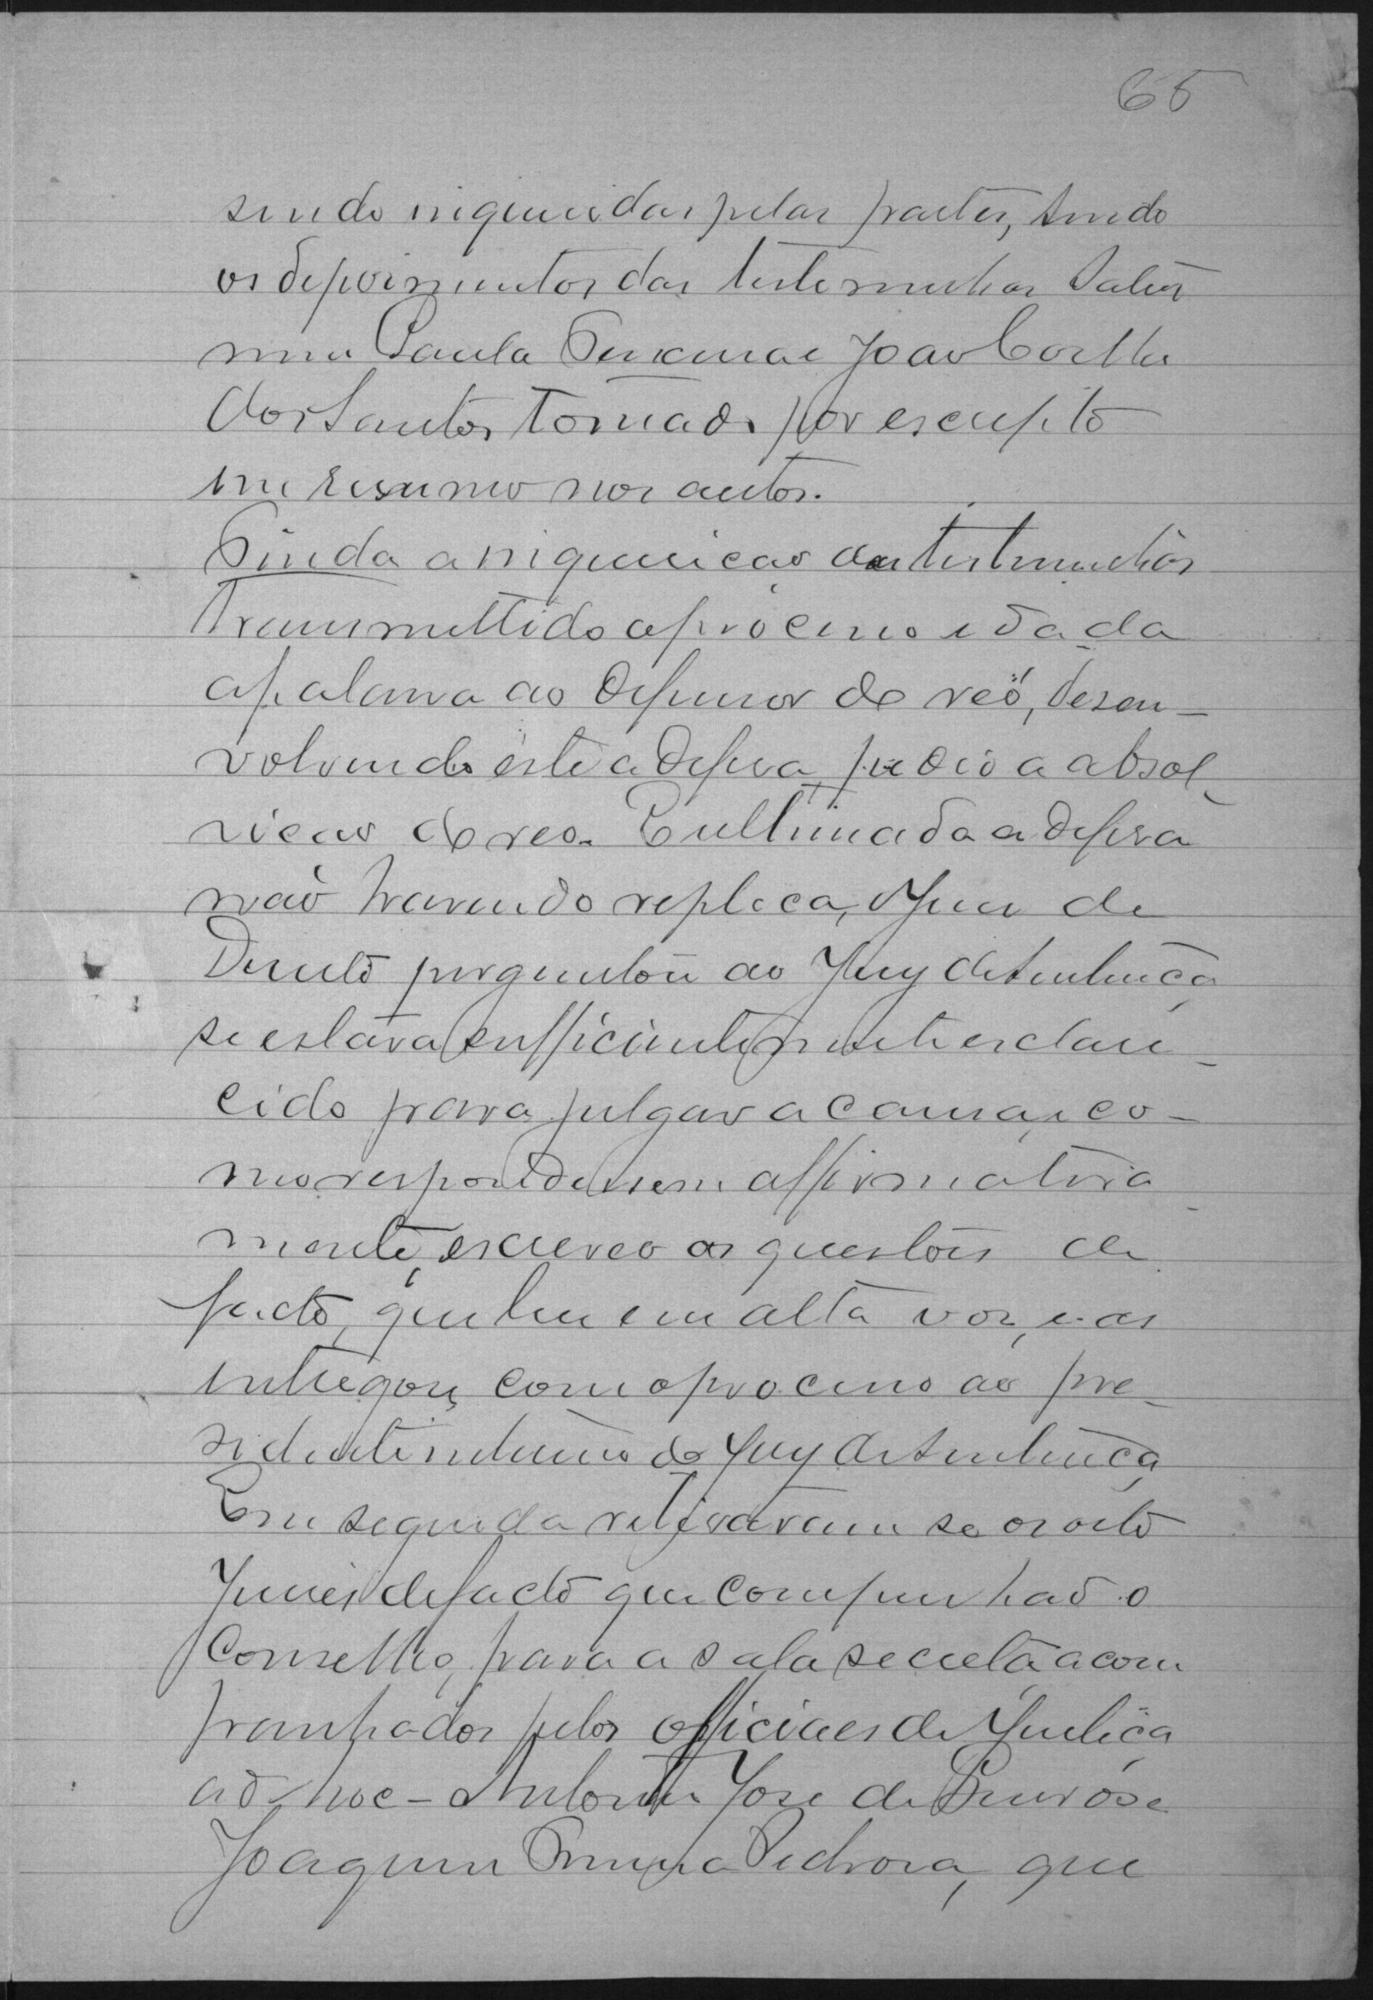 65
sendo inquiridas pelas partes, sendo
os depoimentos das testemunhas Satur
nina Paula e João Coelho
dos Santos tomado por escripto
em resumo nos autos.
Finda a inquirição das testemunhas
transmittido o processo e dada
a palavra ao defensor do réo, desen-
volvendo este a defesa pedio a absol
vição do reo. E ultimada a defesa
não havendo replica, o Juiz de
Direito perguntou ao Jury de sentença
se estava sufficientemente esclare-
cido para julgar a causa, e co-
mo respondessem affirmativa
mente, escreveo as questões de
facto, que leu em alta voz, e as
entregou com o processo ao pre-
sidente interino do Jury de sentença
Em seguida retiraram se os oito
Juizes de facto que compunhão o
Conselho, para a sala secreta acom
panhados pelos officiaes de Justiça
ad hoc - Antonio José de e
Joaquim Pedrosa, que